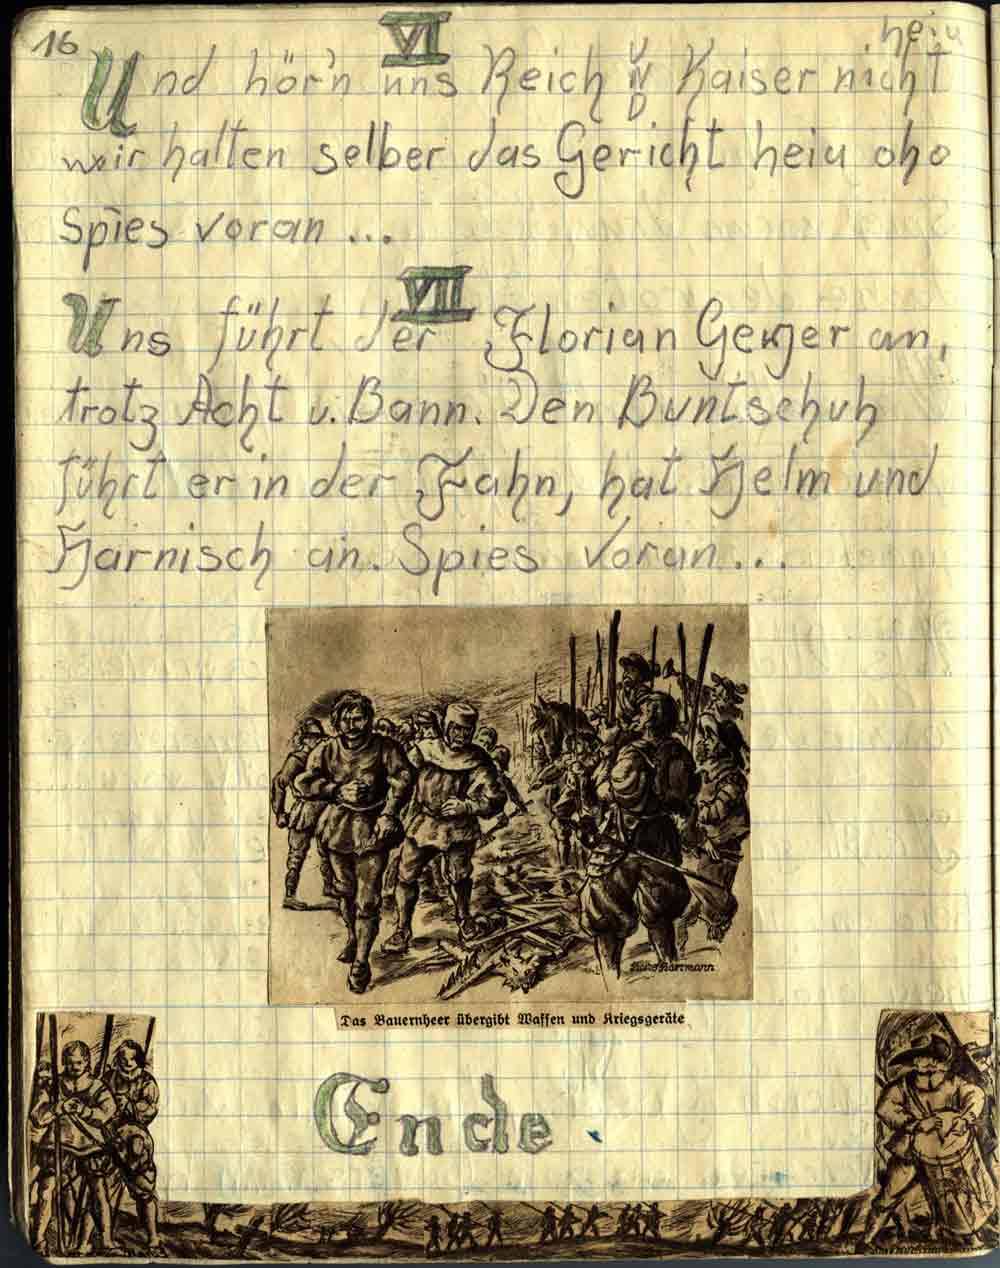 16
VI
heiu
Und hör'n uns Reich UND Kaiser nicht
wir halten selber das Gericht heiu oho
Spies voran ...
VII
Uns führt der Florian Geyer an,
trotz Acht u. Bann. Den Buntschuh
führt er in der Fahn, hat Helm und
Harnisch an. Spies voran ...
Das Bauernheer übergibt Waffen und Kriegsgeräte
Ende.